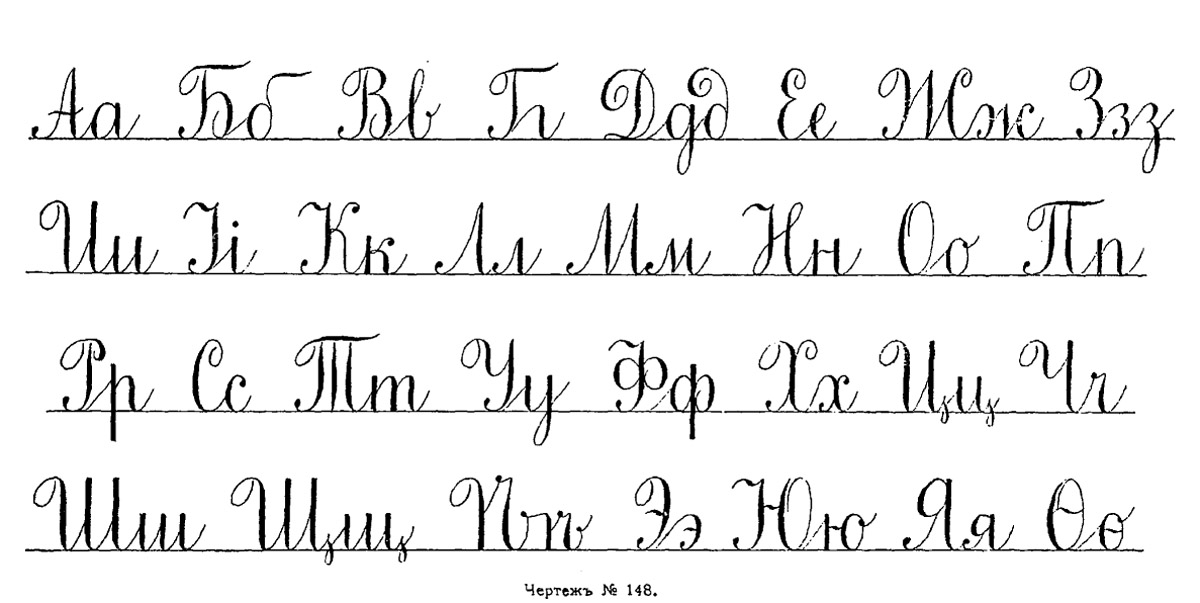 Аа Бб Вв Гг Ддд Ее Жж Ззз
Ии Іі Кк Лл Мм Нн Оо Пп
Рр Сс Тт Уу Фф Хх Цц Чч
Шш Щщ Ѣѣ Ээ Юю Яя Ѳѳ
Чертежъ № 148.